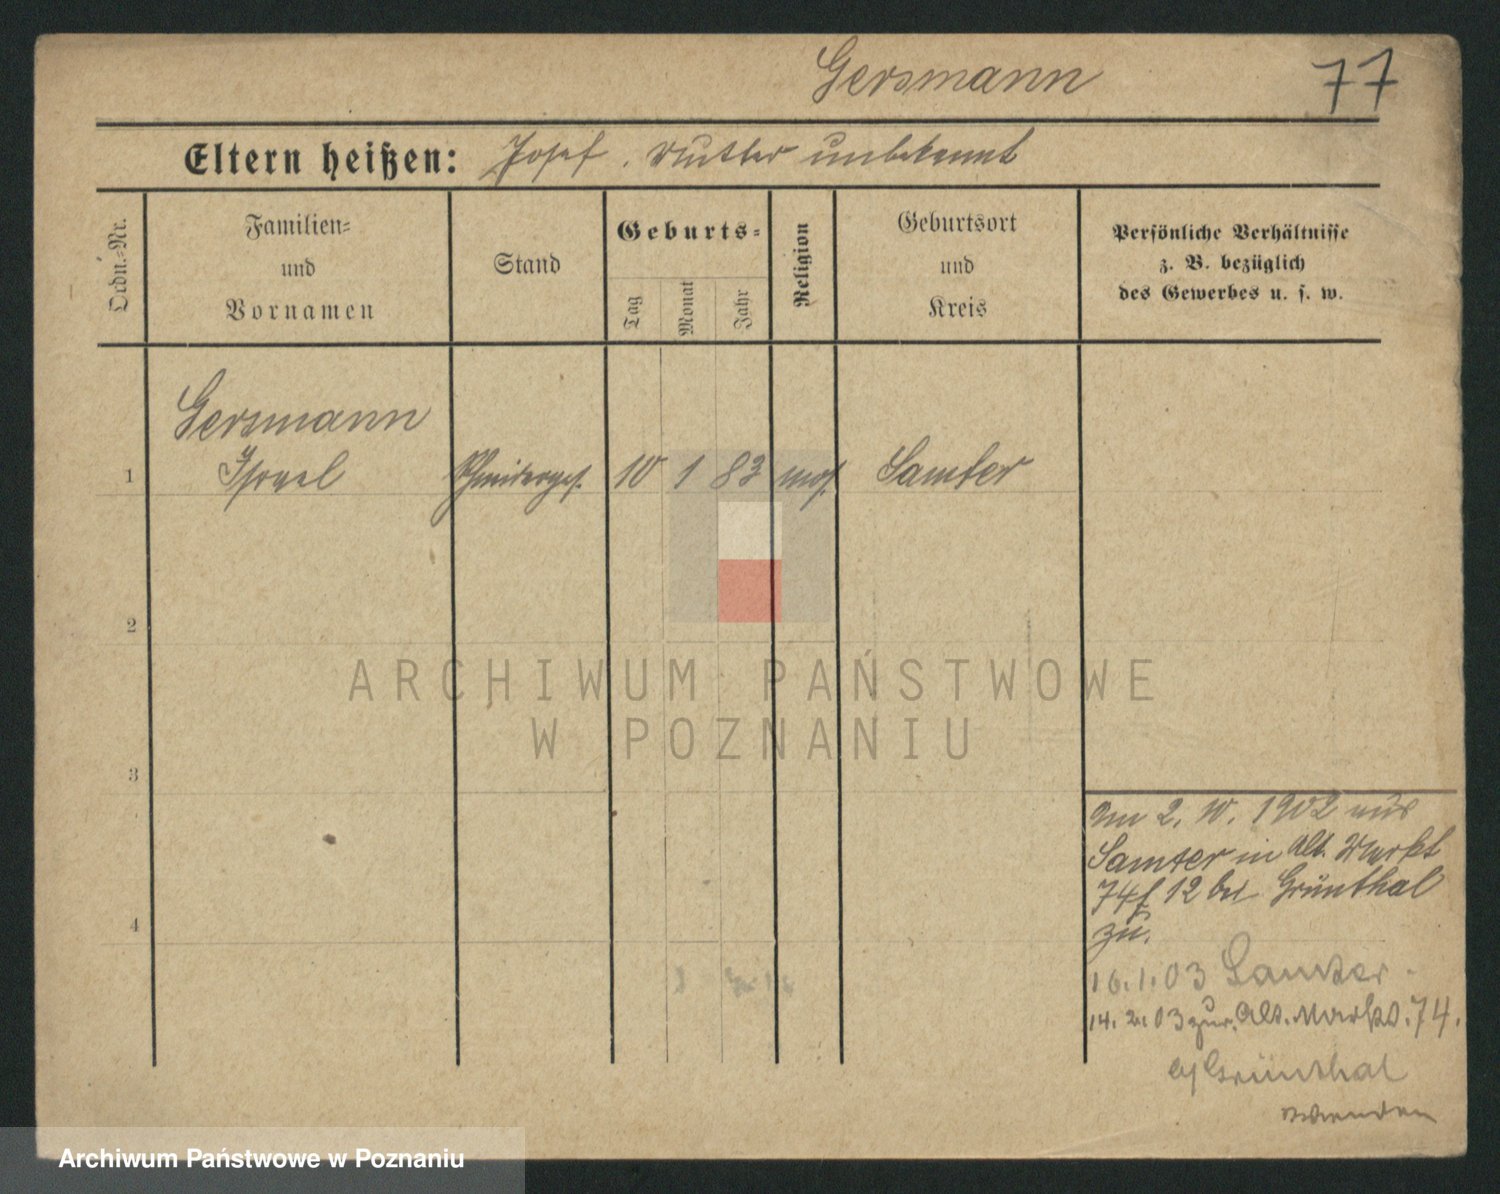 Gersmann 77
Eltern heißen: Josef. Mutter unbekannt
Ordn.-Nr.
Familien-
und
Vornamen
Stand
Geburts-
Tag
Monat
Jahr
Religion
Geburtsort
und
Kreis
Persönliche Verhältnisse
z. B. bezüglich
des Gewerbes u. s. w.
Gersmann
1 Israel Schneiderges. 10 1 83 mos. Samter
2
3
4
Am 2. 10. 1902 aus
Samter in Alt. Markt
74 12 bei Grünthal
zu.
16.1.03 Samter.
14. 2. 03 zur. Alt. Markt. 74.
b/Grünthal
wenden
ARCHIWUM PAŃSTWOWE
W POZNANIU
Archiwum Państwowe w Poznaniu